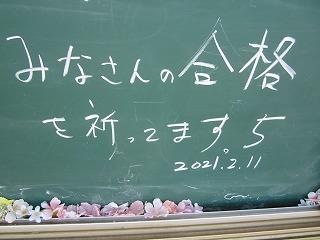 みなさんの合格
を祈ってます。5
2021.2.11